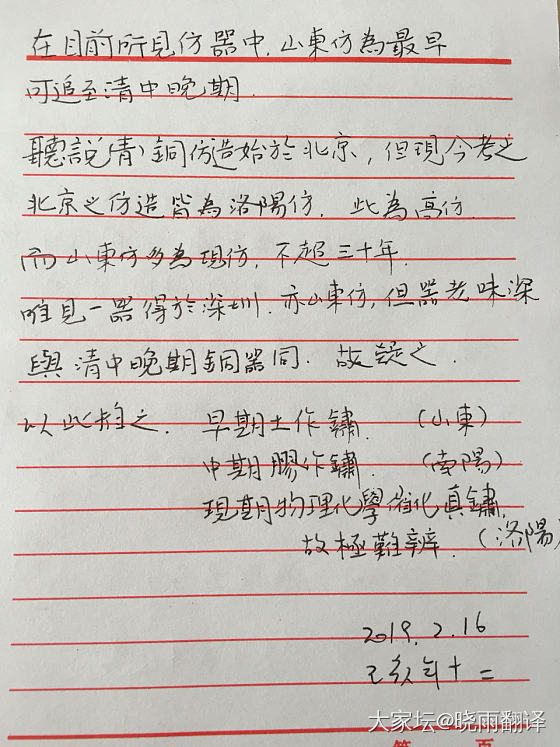 在目前所見仿器中，山東仿為最早
可追至清中晚期．
聽說(青)銅仿造始於北京，但現今考之
北京之仿造皆為洛陽仿．此為高仿．
而山東仿多為現仿，不超三十年．
唯見一器得於深圳．亦山東仿，但器老味深
與清中晚期銅器同．故疑之．
以此拍之．早期土作鏽．（山東）
中期膠作鏽．（南陽）
現期物理化學催化真鏽．
故極難辨．（洛陽）
2019.2.16
己亥年十二
大家坛@晓雨翻译
第 页